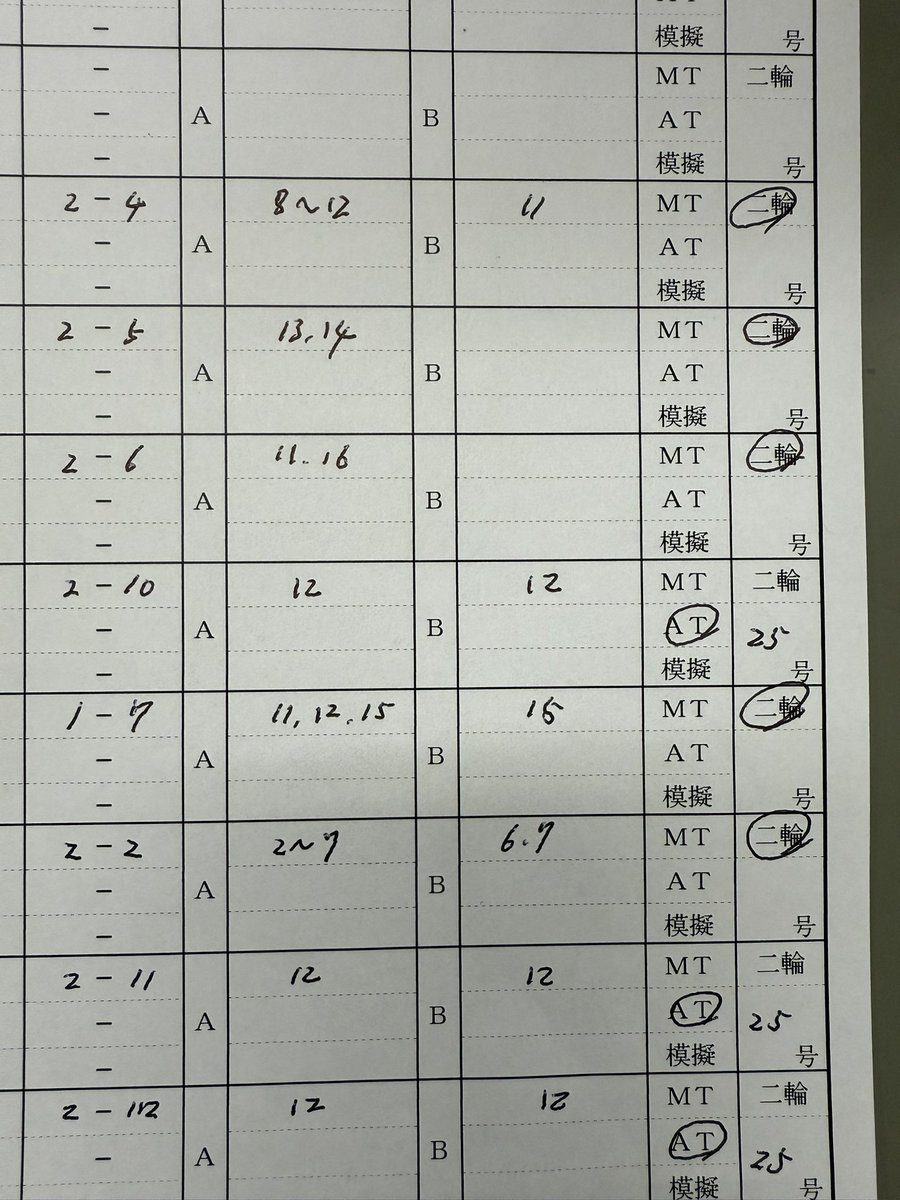 – 模擬 号
– MT 二輪
– A B AT
– 模擬 号
2 – 4 8～12 11 MT 二輪
– A B AT
– 模擬 号
2 – 5 13.14 MT 二輪
– A B AT
– 模擬 号
2 – 6 11.16 MT 二輪
– A B AT
– 模擬 号
2 – 10 12 12 MT 二輪
– A B AT 25
– 模擬 号
1 – 7 11,12.15 15 MT 二輪
– A B AT
– 模擬 号
2 – 2 2～7 6.7 MT 二輪
– A B AT
– 模擬 号
2 – 11 12 12 MT 二輪
– A B AT 25
– 模擬 号
2 – 12 12 MT 二輪
– A B AT 25
模擬 号